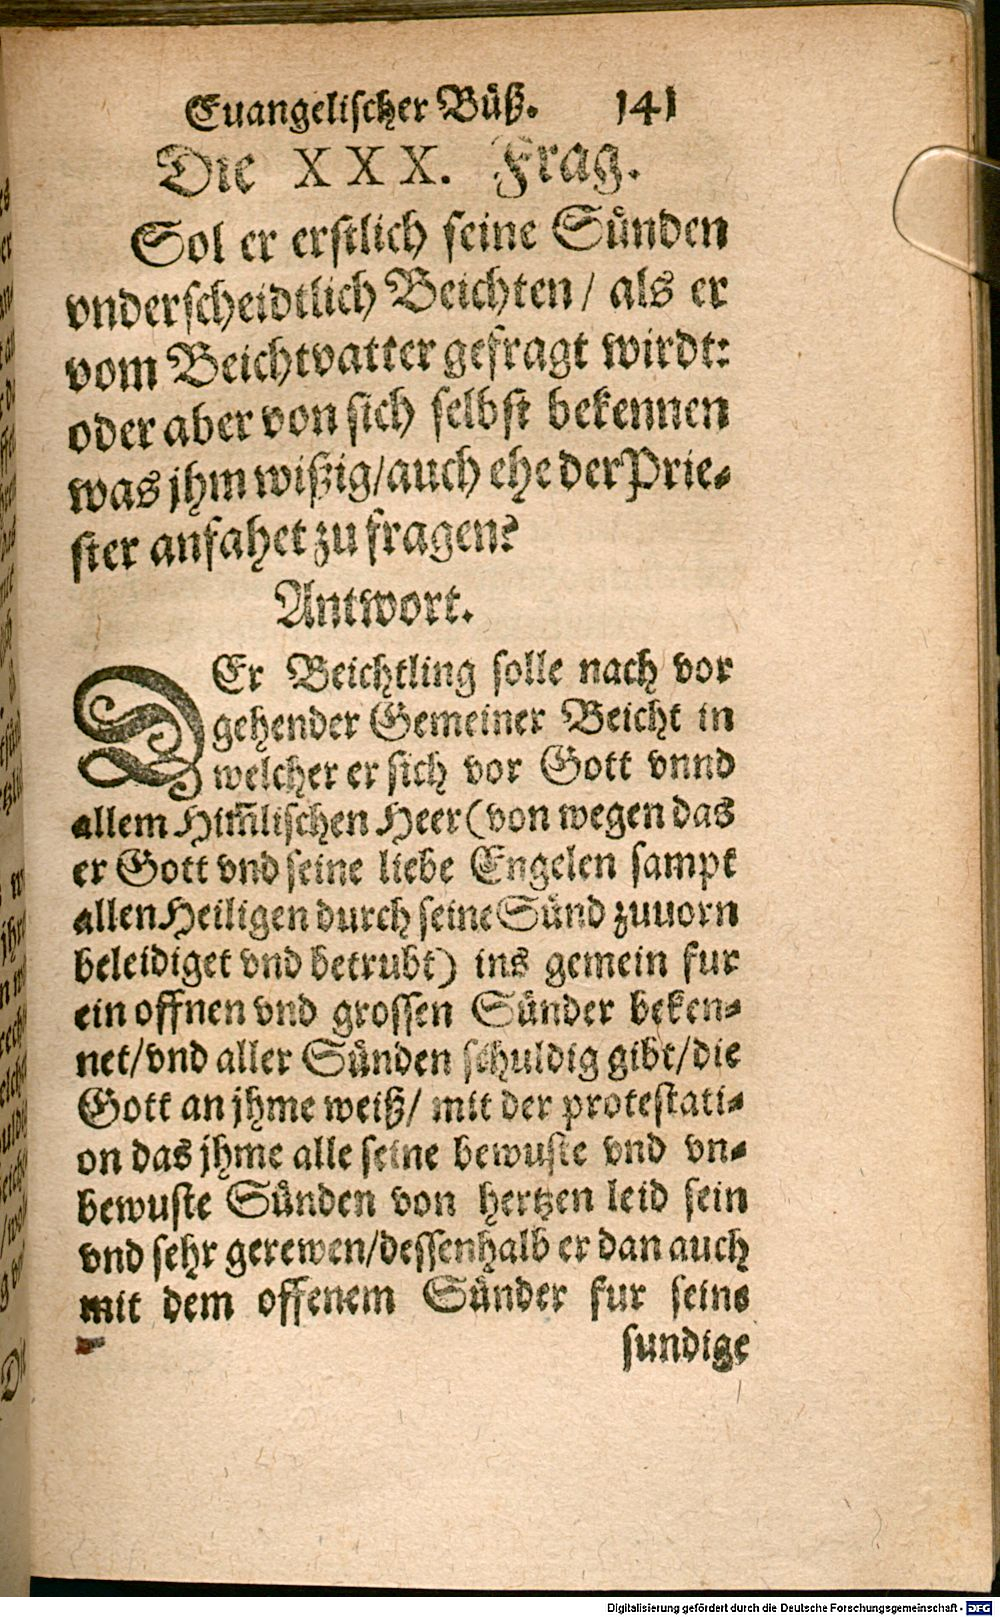 Euangelischer Büß. 141
Die XXX. Frag.
Sol er erstlich seine Sünden
vnderscheidtlich Beichten / als er
vom Beichtvatter gefragt wirdt:
oder aber von sich selbst bekennen
was jhm wißig/auch ehe der Prie-
ster anfahet zu fragen?
Antwort.
DEr Beichtling solle nach vor
gehender Gemeiner Beicht in
welcher er sich vor Gott vnnd
allem Him̃lischen Heer (von wegen das
er Gott vnd seine liebe Engelen sampt
allen Heiligen durch seine Sünd zuuorn
beleidiget vnd betrubt) ins gemein fur
ein offnen vnd grossen Sünder beken-
net/vnd aller Sünden schuldig gibt/die
Gott an jhme weiß/ mit der protestati-
on das jhme alle seine bewuste vnd vn-
bewuste Sünden von hertzen leid sein
vnd sehr gerewen/dessenhalb er dan auch
mit dem offenem Sünder fur seine
sundige
Digitalisierung gefördert durch die Deutsche Forschungsgemeinschaft - DFG